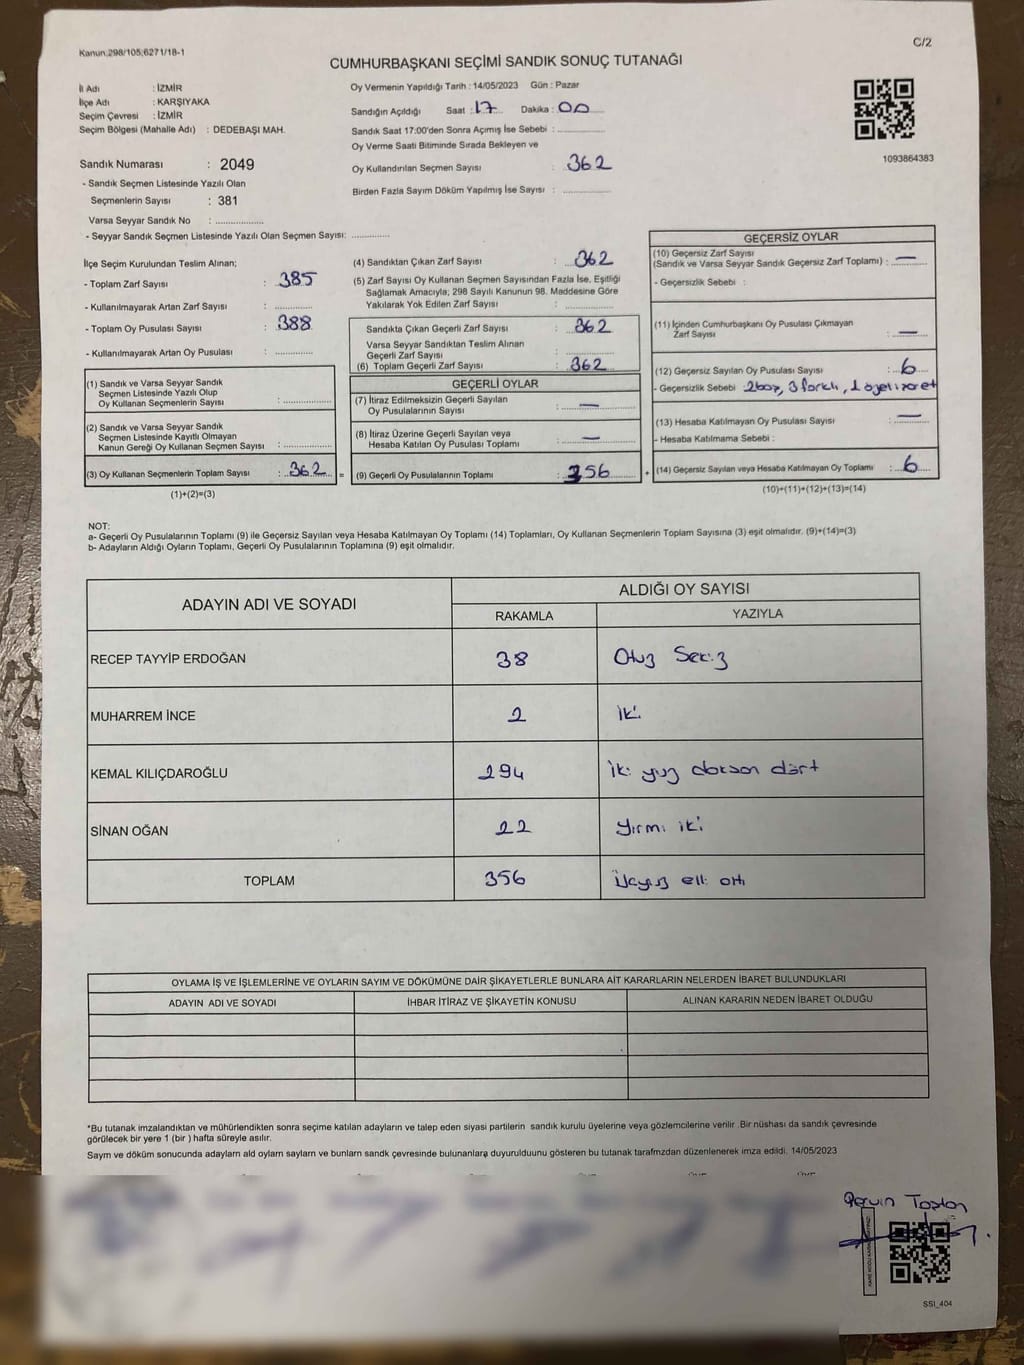 Kanun:298/105;6271/18-1
C/2
CUMHURBAŞKANI SEÇİMİ SANDIK SONUÇ TUTANAĞI
İl Adı : İZMİR
İlçe Adı : KARŞIYAKA
Seçim Çevresi : İZMİR
Seçim Bölgesi (Mahalle Adı) : DEDEBAŞI MAH.
Sandık Numarası : 2049
- Sandık Seçmen Listesinde Yazılı Olan
Seçmenlerin Sayısı : 381
Varsa Seyyar Sandık No : ..................
- Seyyar Sandık Seçmen Listesinde Yazılı Olan Seçmen Sayısı: .............
Oy Vermenin Yapıldığı Tarih : 14/05/2023 Gün : Pazar
Sandığın Açıldığı Saat : 17 Dakika : 00
Sandık Saat 17:00'den Sonra Açımış İse Sebebi : ................
Oy Verme Saati Bitiminde Sırada Bekleyen ve
Oy Kullandırılan Seçmen Sayısı : 362
Birden Fazla Sayım Döküm Yapılmış İse Sayısı : ................
1093864383
İlçe Seçim Kurulundan Teslim Alınan;
- Toplam Zarf Sayısı : 385
- Kullanılmayarak Artan Zarf Sayısı : .............
- Toplam Oy Pusulası Sayısı : 388
- Kullanılmayarak Artan Oy Pusulası : .............
(1) Sandık ve Varsa Seyyar Sandık
Seçmen Listesinde Yazılı Olup
Oy Kullanan Seçmenlerin Sayısı : .................
(2) Sandık ve Varsa Seyyar Sandık
Seçmen Listesinde Kayıtlı Olmayan
Kanun Gereği Oy Kullanan Seçmen Sayısı : .................
(3) Oy Kullanan Seçmenlerin Toplam Sayısı : 362 =
(1)+(2)=(3)
(4) Sandıktan Çıkan Zarf Sayısı : 362
(5) Zarf Sayısı Oy Kullanan Seçmen Sayısından Fazla İse, Eşitliği
Sağlamak Amacıyla; 298 Sayılı Kanunun 98. Maddesine Göre
Yakılarak Yok Edilen Zarf Sayısı : ................
Sandıkta Çıkan Geçerli Zarf Sayısı : 362
Varsa Seyyar Sandıktan Teslim Alınan
Geçerli Zarf Sayısı : ................
(6) Toplam Geçerli Zarf Sayısı : 362
GEÇERLİ OYLAR
(7) İtiraz Edilmeksizin Geçerli Sayılan
Oy Pusulalarının Sayısı : —
(8) İtiraz Üzerine Geçerli Sayılan veya
Hesaba Katılan Oy Pusulası Toplamı : —
(9) Geçerli Oy Pusulalarının Toplamı : 356 +
GEÇERSİZ OYLAR
(10) Geçersiz Zarf Sayısı
(Sandık ve Varsa Seyyar Sandık Geçersiz Zarf Toplamı) : —
- Geçersizlik Sebebi :
(11) İçinden Cumhurbaşkanı Oy Pusulası Çıkmayan
Zarf Sayısı : —
(12) Geçersiz Sayılan Oy Pusulası Sayısı : 6
- Geçersizlik Sebebi : 2 boz, 3 farklı, 1 özel işaret
(13) Hesaba Katılmayan Oy Pusulası Sayısı : —
- Hesaba Katılmama Sebebi :
(14) Geçersiz Sayılan veya Hesaba Katılmayan Oy Toplamı : 6
(10)+(11)+(12)+(13)=(14)
NOT:
a- Geçerli Oy Pusulalarının Toplamı (9) ile Geçersiz Sayılan veya Hesaba Katılmayan Oy Toplamı (14) Toplamları, Oy Kullanan Seçmenlerin Toplam Sayısına (3) eşit olmalıdır. (9)+(14)=(3)
b- Adayların Aldığı Oyların Toplamı, Geçerli Oy Pusulalarının Toplamına (9) eşit olmalıdır.
ADAYIN ADI VE SOYADI
ALDIĞI OY SAYISI
RAKAMLA YAZIYLA
RECEP TAYYİP ERDOĞAN 38 Otuz Sekiz
MUHARREM İNCE 2 iki
KEMAL KILIÇDAROĞLU 294 iki yüz doksan dört
SİNAN OĞAN 22 Yirmi iki
TOPLAM 356 Üçyüz elli altı
OYLAMA İŞ VE İŞLEMLERİNE VE OYLARIN SAYIM VE DÖKÜMÜNE DAİR ŞİKAYETLERLE BUNLARA AİT KARARLARIN NELERDEN İBARET BULUNDUKLARI
ADAYIN ADI VE SOYADI İHBAR İTİRAZ VE ŞİKAYETİN KONUSU ALINAN KARARIN NEDEN İBARET OLDUĞU
*Bu tutanak imzalandıktan ve mühürlendikten sonra seçime katılan adayların ve talep eden siyasi partilerin sandık kurulu üyelerine veya gözlemcilerine verilir .Bir nüshası da sandık çevresinde
görülecek bir yere 1 (bir ) hafta süreyle asılır.
Saym ve döküm sonucunda adaylarn ald oylarn saylarn ve bunlarn sandk çevresinde bulunanlara duyurulduunu gösteren bu tutanak tarafmzdan düzenlenerek imza edildi. 14/05/2023
SSI_404